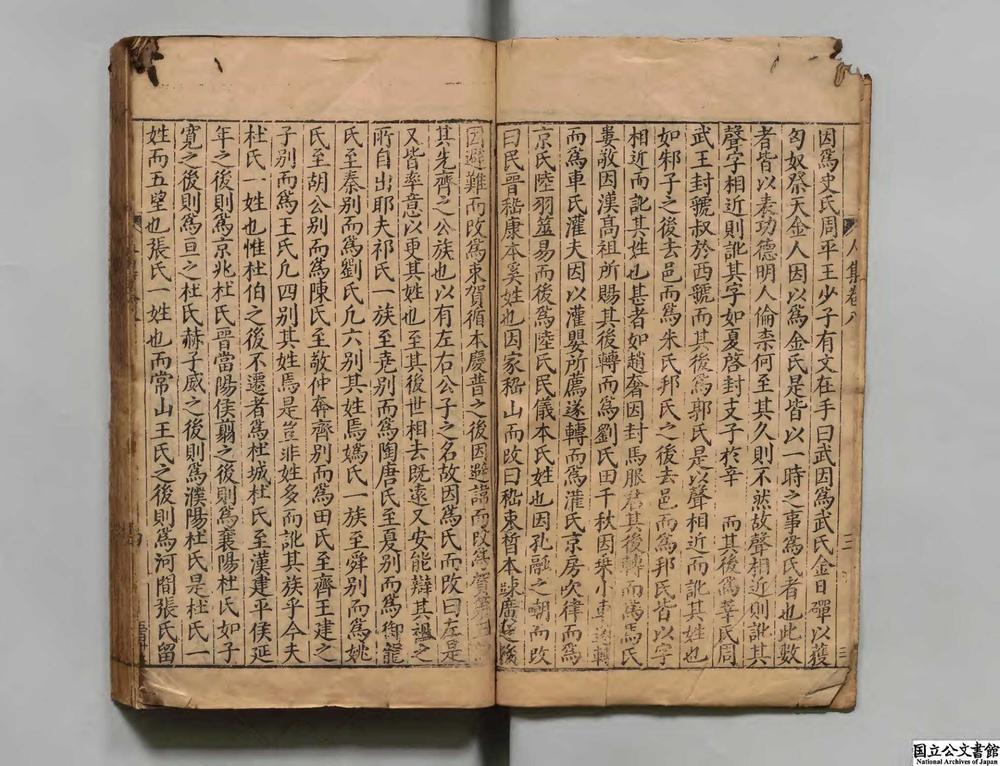 因為史氏周平王少子有文在手曰武因為武氏金日磾以獲
匈奴祭天金人因以為金氏是皆以一時之事為氏者也此數
者皆以表功德明人倫柰何至其久則不然故聲相近則訛其
聲字相近則訛其字如夏啓封支子於辛 而其後為莘氏周
武王封虢叔於西虢而其後為郭氏是以聲相近而訛其姓也
如邾子之後去邑而為朱氏邦氏之後去邑而為邦氏皆以字
相近而訛其姓也甚者如趙奢因封馬服君其後轉而為馬氏
婁敬因漢髙祖所賜其後轉而為劉氏田千秋因乗小車遂轉
而為車氏灌夫因以灌嬰所薦遂轉而為灌氏京房吹律而為
京氏陸羽筮易而後為陸氏民儀本氏姓也因孔融之嘲而改
曰民晉嵇康本奚姓也因家嵇山而改曰嵇束晳本踈廣之後
因避難而改為束賀循本慶普之後因避諱而改為賀
其先齊之公族也以有左右公子之名故因為氏而改曰左是
又皆率意以更其姓也至其後世相去既遠又安能辯其
所自出耶夫祁氏一族至堯别而為陶唐氏至夏别而為御龍
氏至秦别而為劉氏凢六别其姓焉媯氏一族至舜别而為姚
氏至胡公别而為陳氏至敬仲奔齊别而為田氏至齊王建之
子别而為王氏凢四别其姓焉是豈非姓多而訛其族乎今夫
杜氏一姓也惟杜伯之後不遷者為杜城杜氏至漢建平侯延
年之後則為京兆杜氏晉當陽侯翦之後則為襄陽杜氏如子
寛之後則為亘之杜氏赫子威之後則為濮陽杜氏是杜氏一
姓而五望也張氏一姓也而常山王氏之後則為河間張氏留
人集卷八
国立公文書館
National Archives of Japan